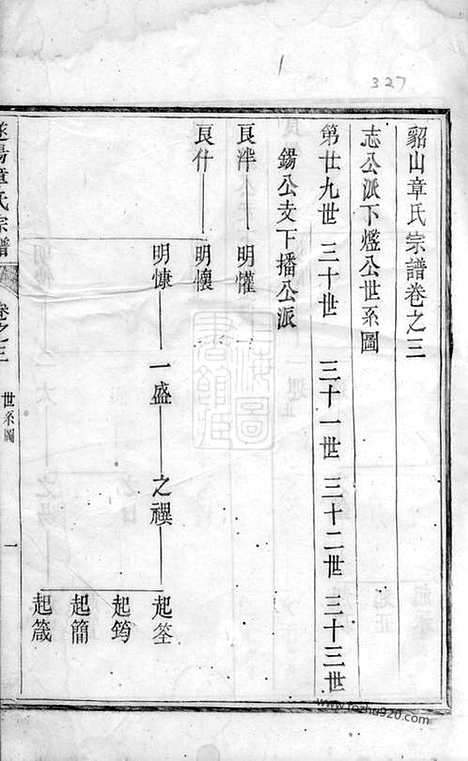 1
327
貂山章氏宗譜卷之三
志公派下爁公世系圖
第廿九世 三十世 三十一世 三十二世 三十三世
鍚公支下播公派
良泮 明懽
良什 明懷
明慷 一盛 之禩 起筌
起筠
起簡
起箴
遂陽章氏宗譜 卷之三 世系圖 一
上海圖書館藏
www.tozhu920.com